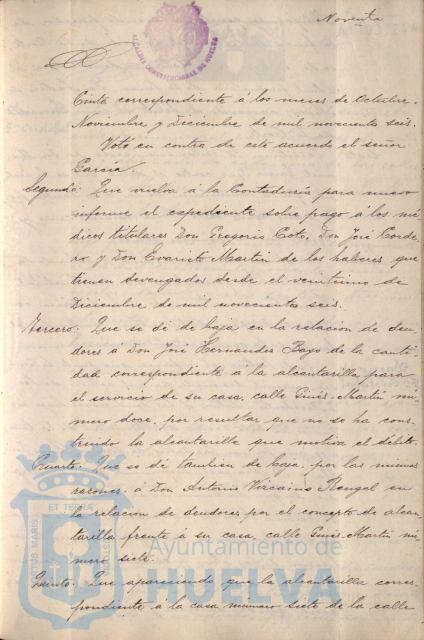 Noventa
ALCALDIA CONSTITUCIONAL DE HUELVA
Cinta correspondiente á los meses de Octubre,
Noviembre y Diciembre de mil novecientos seis.
Votó en contra de este acuerdo el señor
García.
Segundo: Que vuelva á la Contaduría para nuevo
informe el expediente sobre pago á los mé-
dicos titulares Don Gregorio Coto, Don José Corde-
ro y Don Evaristo Martin de los haberes que
tienen devengados desde el veintiuno de
Diciembre de mil novecientos seis.
Tercero: Que se dé de baja en la relacion de deu-
dores á Don José Hernandez Bayo de la canti-
dad correspondiente á la alcantarilla para
el servicio de su casa, calle Ginés-Martin nú-
mero doce, por resultar que no se ha cons-
truido la alcantarilla que motiva el débito.
Cuarto: Que se dé tambien de baja, por las mismas
razones, á Don Antonio Vizcaino Rengel en
la relacion de deudores por el concepto de alcan-
tarilla frente á su casa, calle Ginés-Martin nú-
mero siete.
Quinto: Que apareciendo que la alcantarilla corres-
pondiente á la casa número siete de la calle
ET TERRAE
PORTUS MARIS
CUSTODIA
Ayuntamiento de
HUELVA